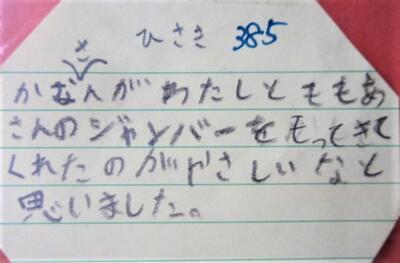 ひさき 385
かなさんが わたしと ももあ
さんのジャンバーをもってきて
くれたのがやさしいなと
思いました。